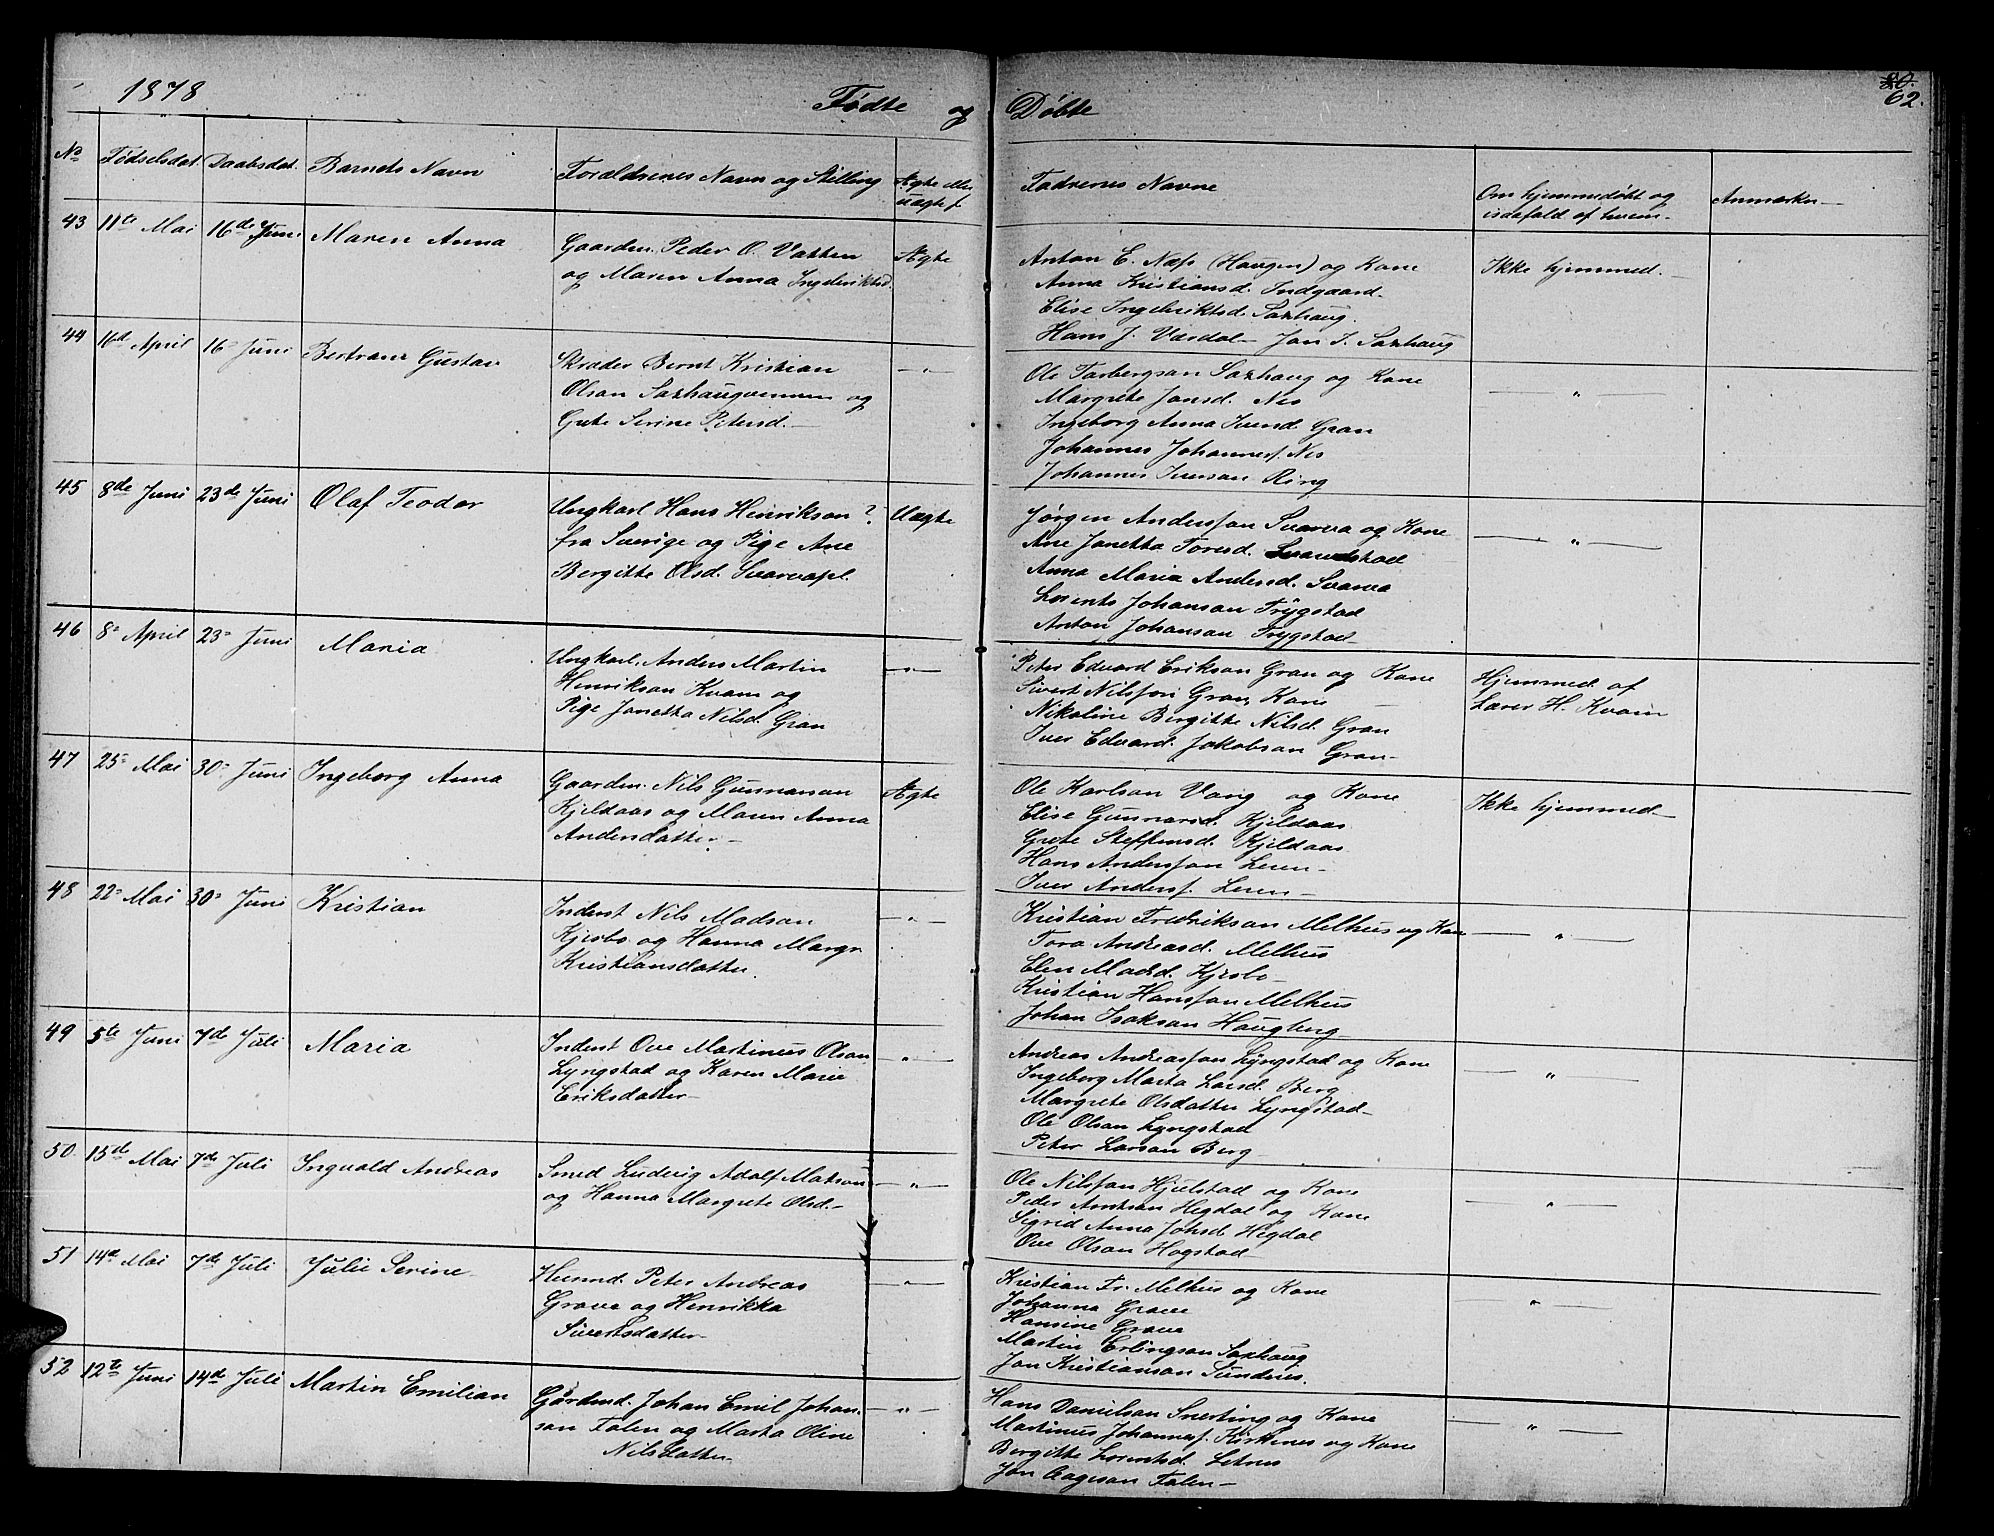 1878
Fødte og Døbte
80.
62.
No
Fødselsdat.
Daabsdat.
Barnets Navn
Forældrenes Navn og Stilling
Ægte eller
uægte f.
Faddernes Navne
Om hjemmedøbt og
isdafald af hvem.
Anmærkn.
43 11te Mai 16de Juni Maren Anna
Gaardm. Peder O. Vatten
og Maren Anna Ingebriktsd.
Ægte
Anton E. Næss (Haugen) og Kone
Anna Kristiansd. Indgaard.
Elise Ingebriktsd. Saxhaug.
Hans J. Vasdal - Jon J. Saxhaug
Ikke hjemmed.
44 16d April 16d Juni Bertram Gustav
Skræder Bernt Kristian
Olsen Saxhaugvemmen og
Gute Serine Petersd.
— " —
Ole Torbergsan Saxhaug og Kone
Margrete Jonsd. Nes
Ingeborg Anna Iversd. Gran
Johannes Johannesf. Nes
Johannes Iversan Ring
— " —
45 8de Juni 23de Juni Olaf Teodor
Ungkarl Hans Henriksan ?
fra Sverige og Pige Ane
Bergitte Olsd. Svarvapl.
Uægte
Jørgen Anderssan Svarva og Kone
Ane Janetta Toresd.
Anna Maria Andersd. Svarva
Lorents Johansan Trygstad
Anton Johansan Trygstad
— " —
46 8d April 23d Juni Maria
Ungkarl. Anders Martin
Henriksan Kvam og
Pige Janetta Nilsd. Gran
— " —
Peter Edvard Eriksan Gran og Kone
Sivert Nilssan Gran, Kone
Nikoline Bergitte Nilsd. Gran
Iver Edvard Jakobsan Gran
Hjemmed. af
Lærer H. Kvam
47 25d Mai 30d Juni Ingeborg Anna
Gaardm. Nils Gunnarsan
Kjeldaas og Maren Anna
Andersdatter.
Ægte
Ole Karlsan Vang og Kone
Elise Gunnarsd. Kjeldaas
Grete Steffensd. Kjeldaas
Hans Anderssan Leren
Iver Andersf. Leren
Ikke hjemmed.
48 22d Mai 30d Juni Kristian
Inderst Nils Madsan
Kjesbo og Hanna Margr.
Kristiansdatter.
— " —
Kristian Fredriksan Melhus og Kone
Tora Andreasd. Melhus
Elen Madsd. Kjesbo
Kristian Hanssan Melhus
Johan Isaksan Haugberg
— " —
49 5te Juni 7de Juli Maria
Inderst Ove Martinus Olsan
Lyngstad og Karen Marie
Eriksdatter
— " —
Andreas Andreassan Lyngstad og Kone
Ingeborg Marta Larsd. Berg
Margrete Olsdatter Lyngstad
Ole Olsan Lyngstad
Peter Larsan Berg
— " —
50 15de Mai 7de Juli Ingvald Andreas
Smed Ludvig Adolf Matson
og Hanna Margrete Olsd.
— " —
Ole Nilssan Hjelstad og Kone
Peder Arntsan Hegdal og Kone
Sigrid Anna Johsd Hegdal
Ove Olsan Hogstad
— " —
51 14de Mai 7de Juli Julie Serine
Husmd. Peter Andreas
Grava og Henrikka
Sivertsdatter
— " —
Kristian Fr. Melhus og Kone
Johanna Grava
Hansine Grava
Martin Erlingsan Saxhaug
Jon Kristiansan Sundnes.
— " —
52 12te Juni 14de Juli Martin Emilian
Gårdmd. Johan Emil Johan-
san Falen og Marta Oline
Nilsdatter
— " —
Hans Danielsan Snerting og Kone
Martinus Johannesf. Kirknes og Kone
Bergitte Lorentsd. Letnes
Jon Aagesan Falen
— " —